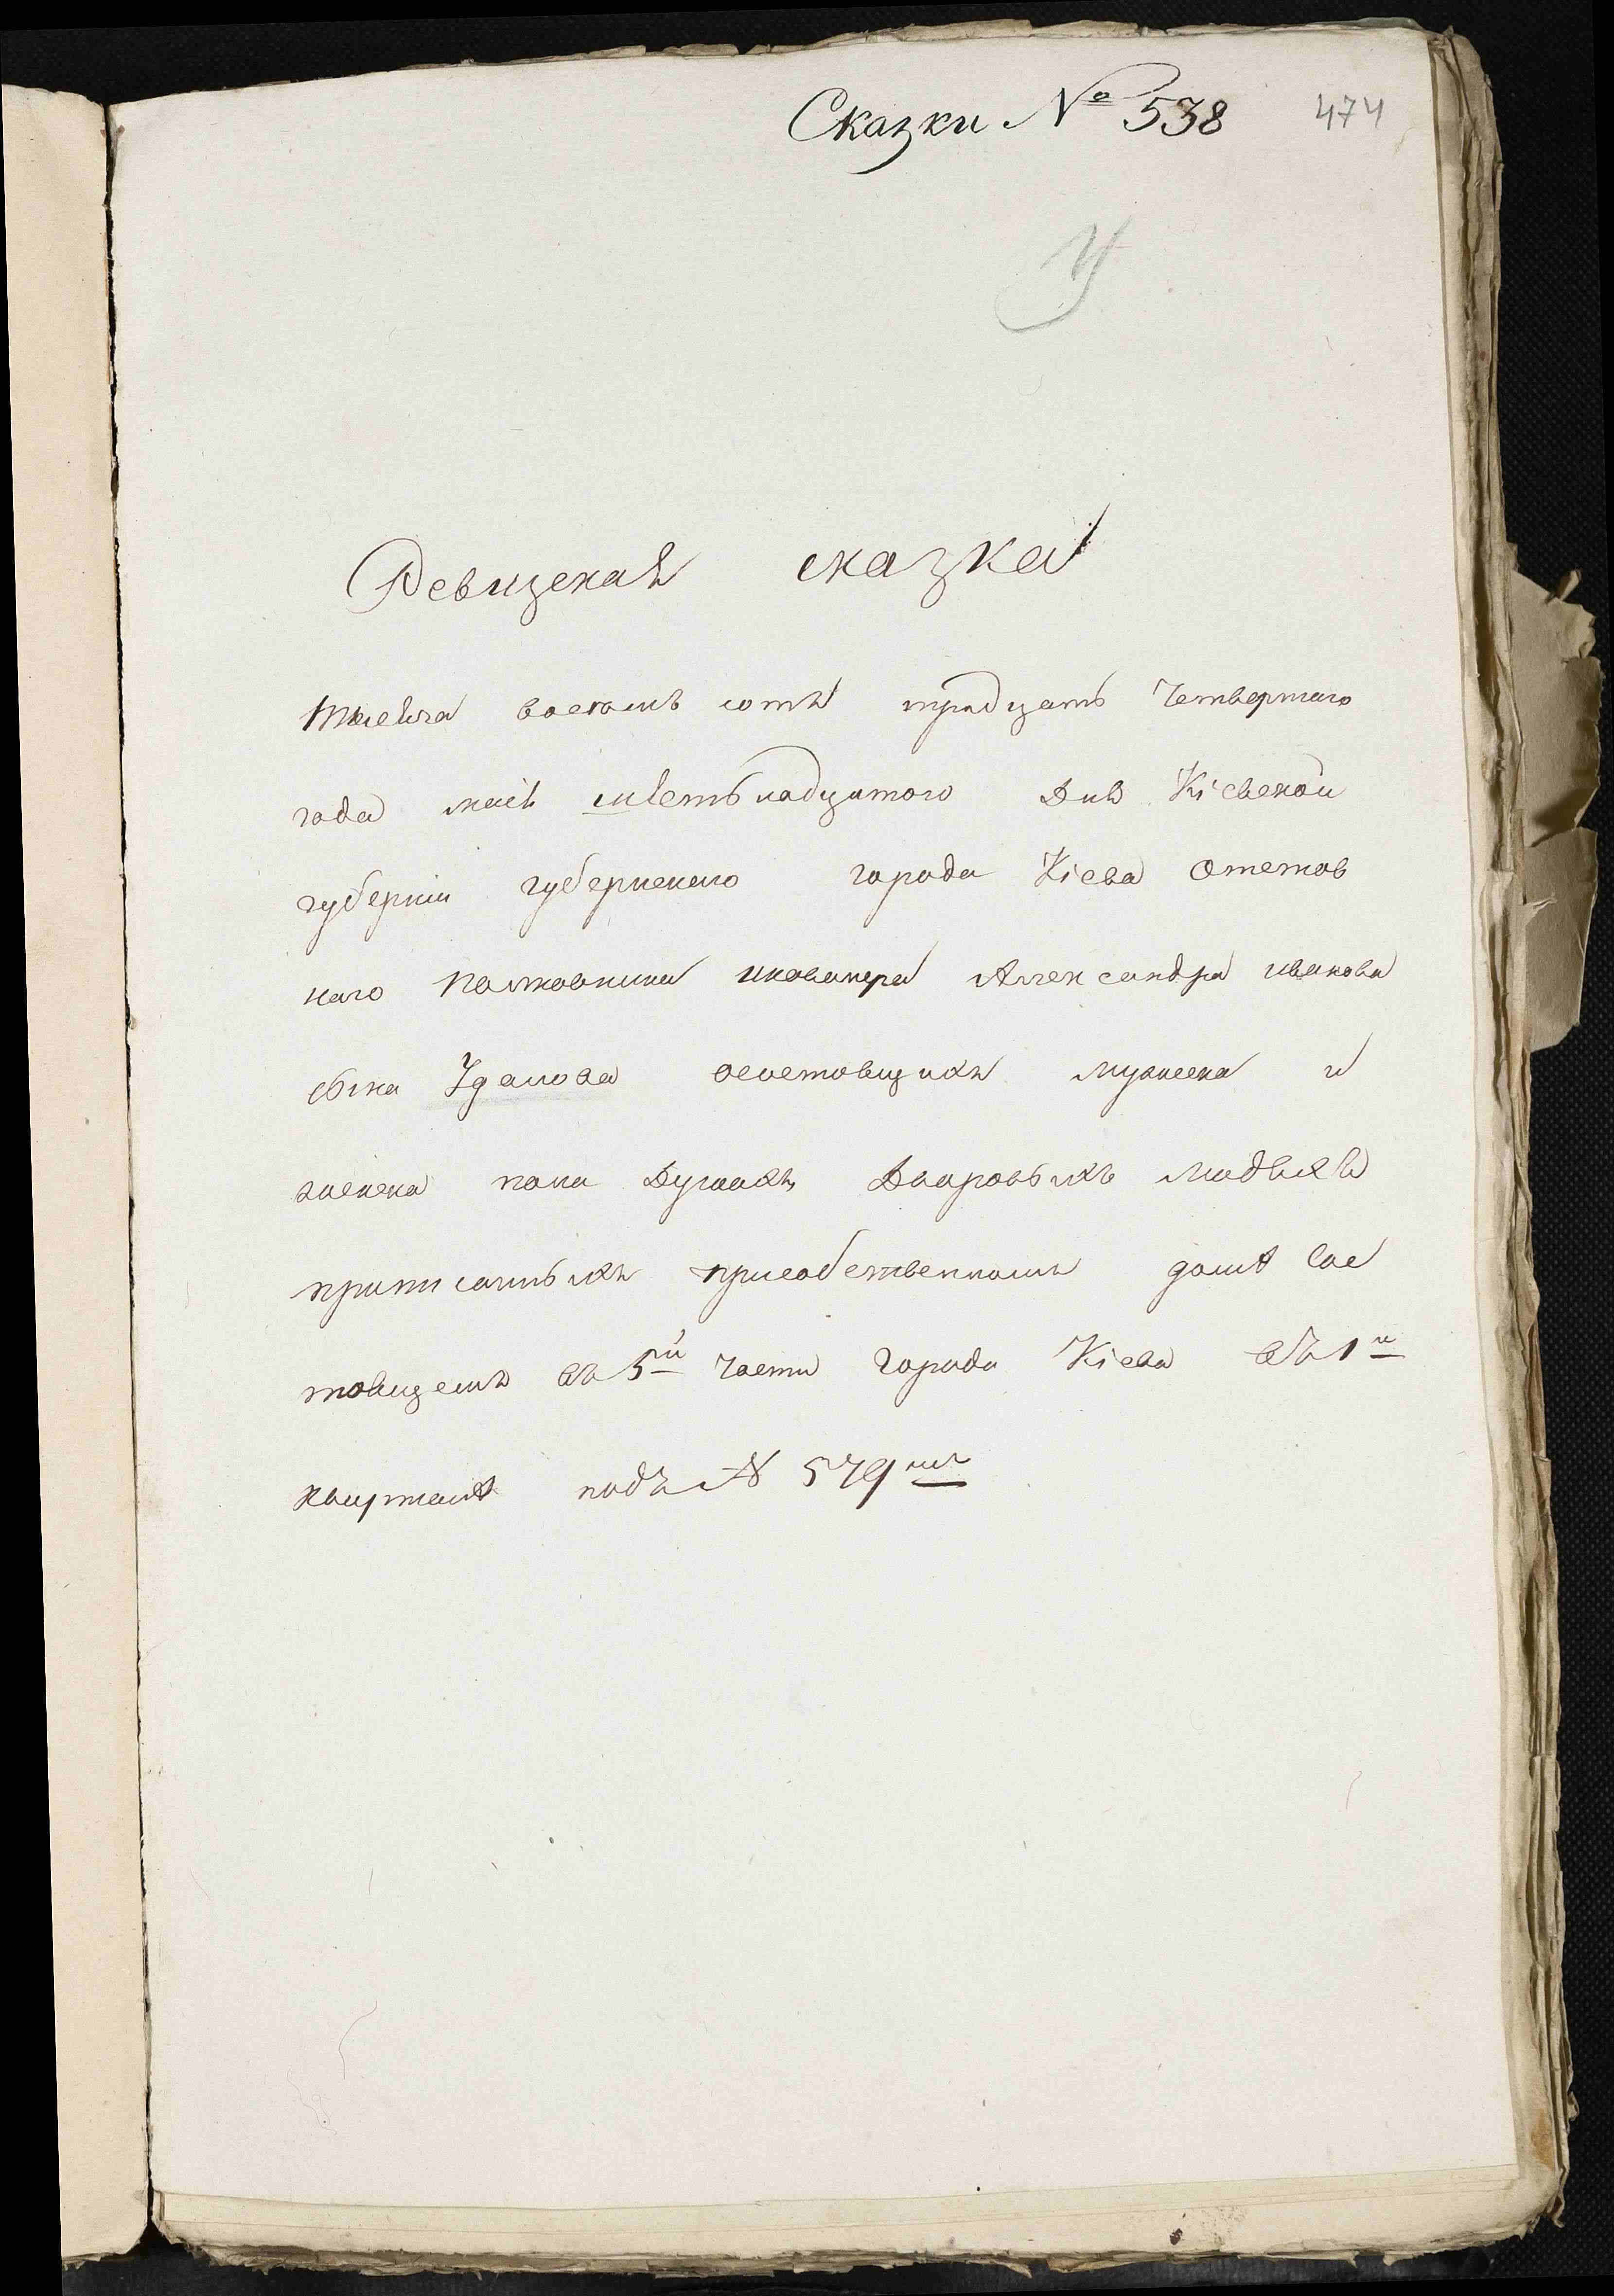 Сказки № 538 474
У
Ревизская сказка
тысеча восемь сотъ тридцать Четвертаго
года маія шестьнадцатого дня Кіевской
губерніи губернскаго города Кіева Отстав
наго Полковника икавалера Александра иванова
сына Удалова осостоящихъ мужеска и
женска пола душахъ Дваровыхъ людѣяхъ
приписанныхъ присобственномъ домѣ сос
тоящемъ въ 5й части города Кіева въ 1й
квартале подъ № 579мъ